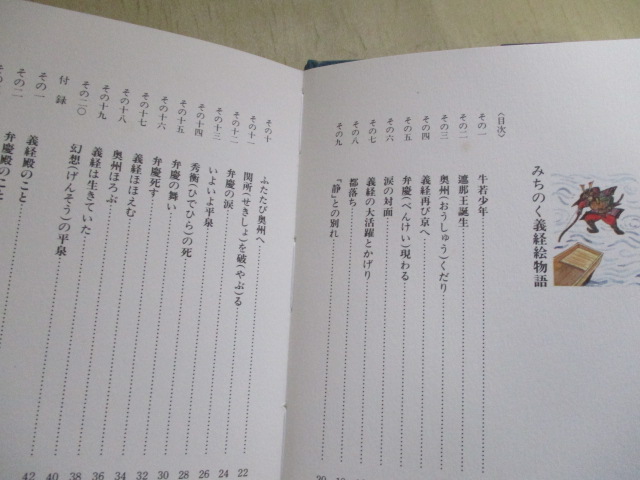 みちのく義経絵物語
〈目次〉
その一 牛若少年
その二 遮那王誕生
その三 奥州(おうしゅう)くだり
その四 義経再び京へ
その五 弁慶(べんけい)現わる
その六 涙の対面
その七 義経の大活躍とかげり
その八 都落ち
その九 「静」との別れ 20
その十 ふたたび奥州へ 22
その十一 関所(せきしょ)を破(やぶ)る 24
その十二 弁慶の涙 26
その十三 いよいよ平泉 28
その十四 秀衡(ひでひら)の死 30
その十五 弁慶の舞い 32
その十六 弁慶死す 34
その十七 義経ほほえむ 36
その十八 奥州ほろぶ 38
その十九 義経は生きていた 40
その二〇 幻想(げんそう)の平泉 42
付録
その一 義経殿のこと
その二 弁慶殿のこと